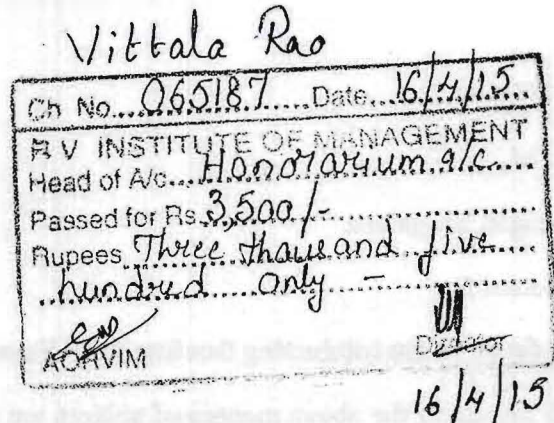 Vittala Rao
Ch No. 065187 Date 16/4/15
R V INSTITUTE OF MANAGEMENT
Head of A/c. Honorarium a/c.
Passed for Rs. 3,500/-
Rupees Three thousand five
hundred only -
AORVIM Director
16/4/15